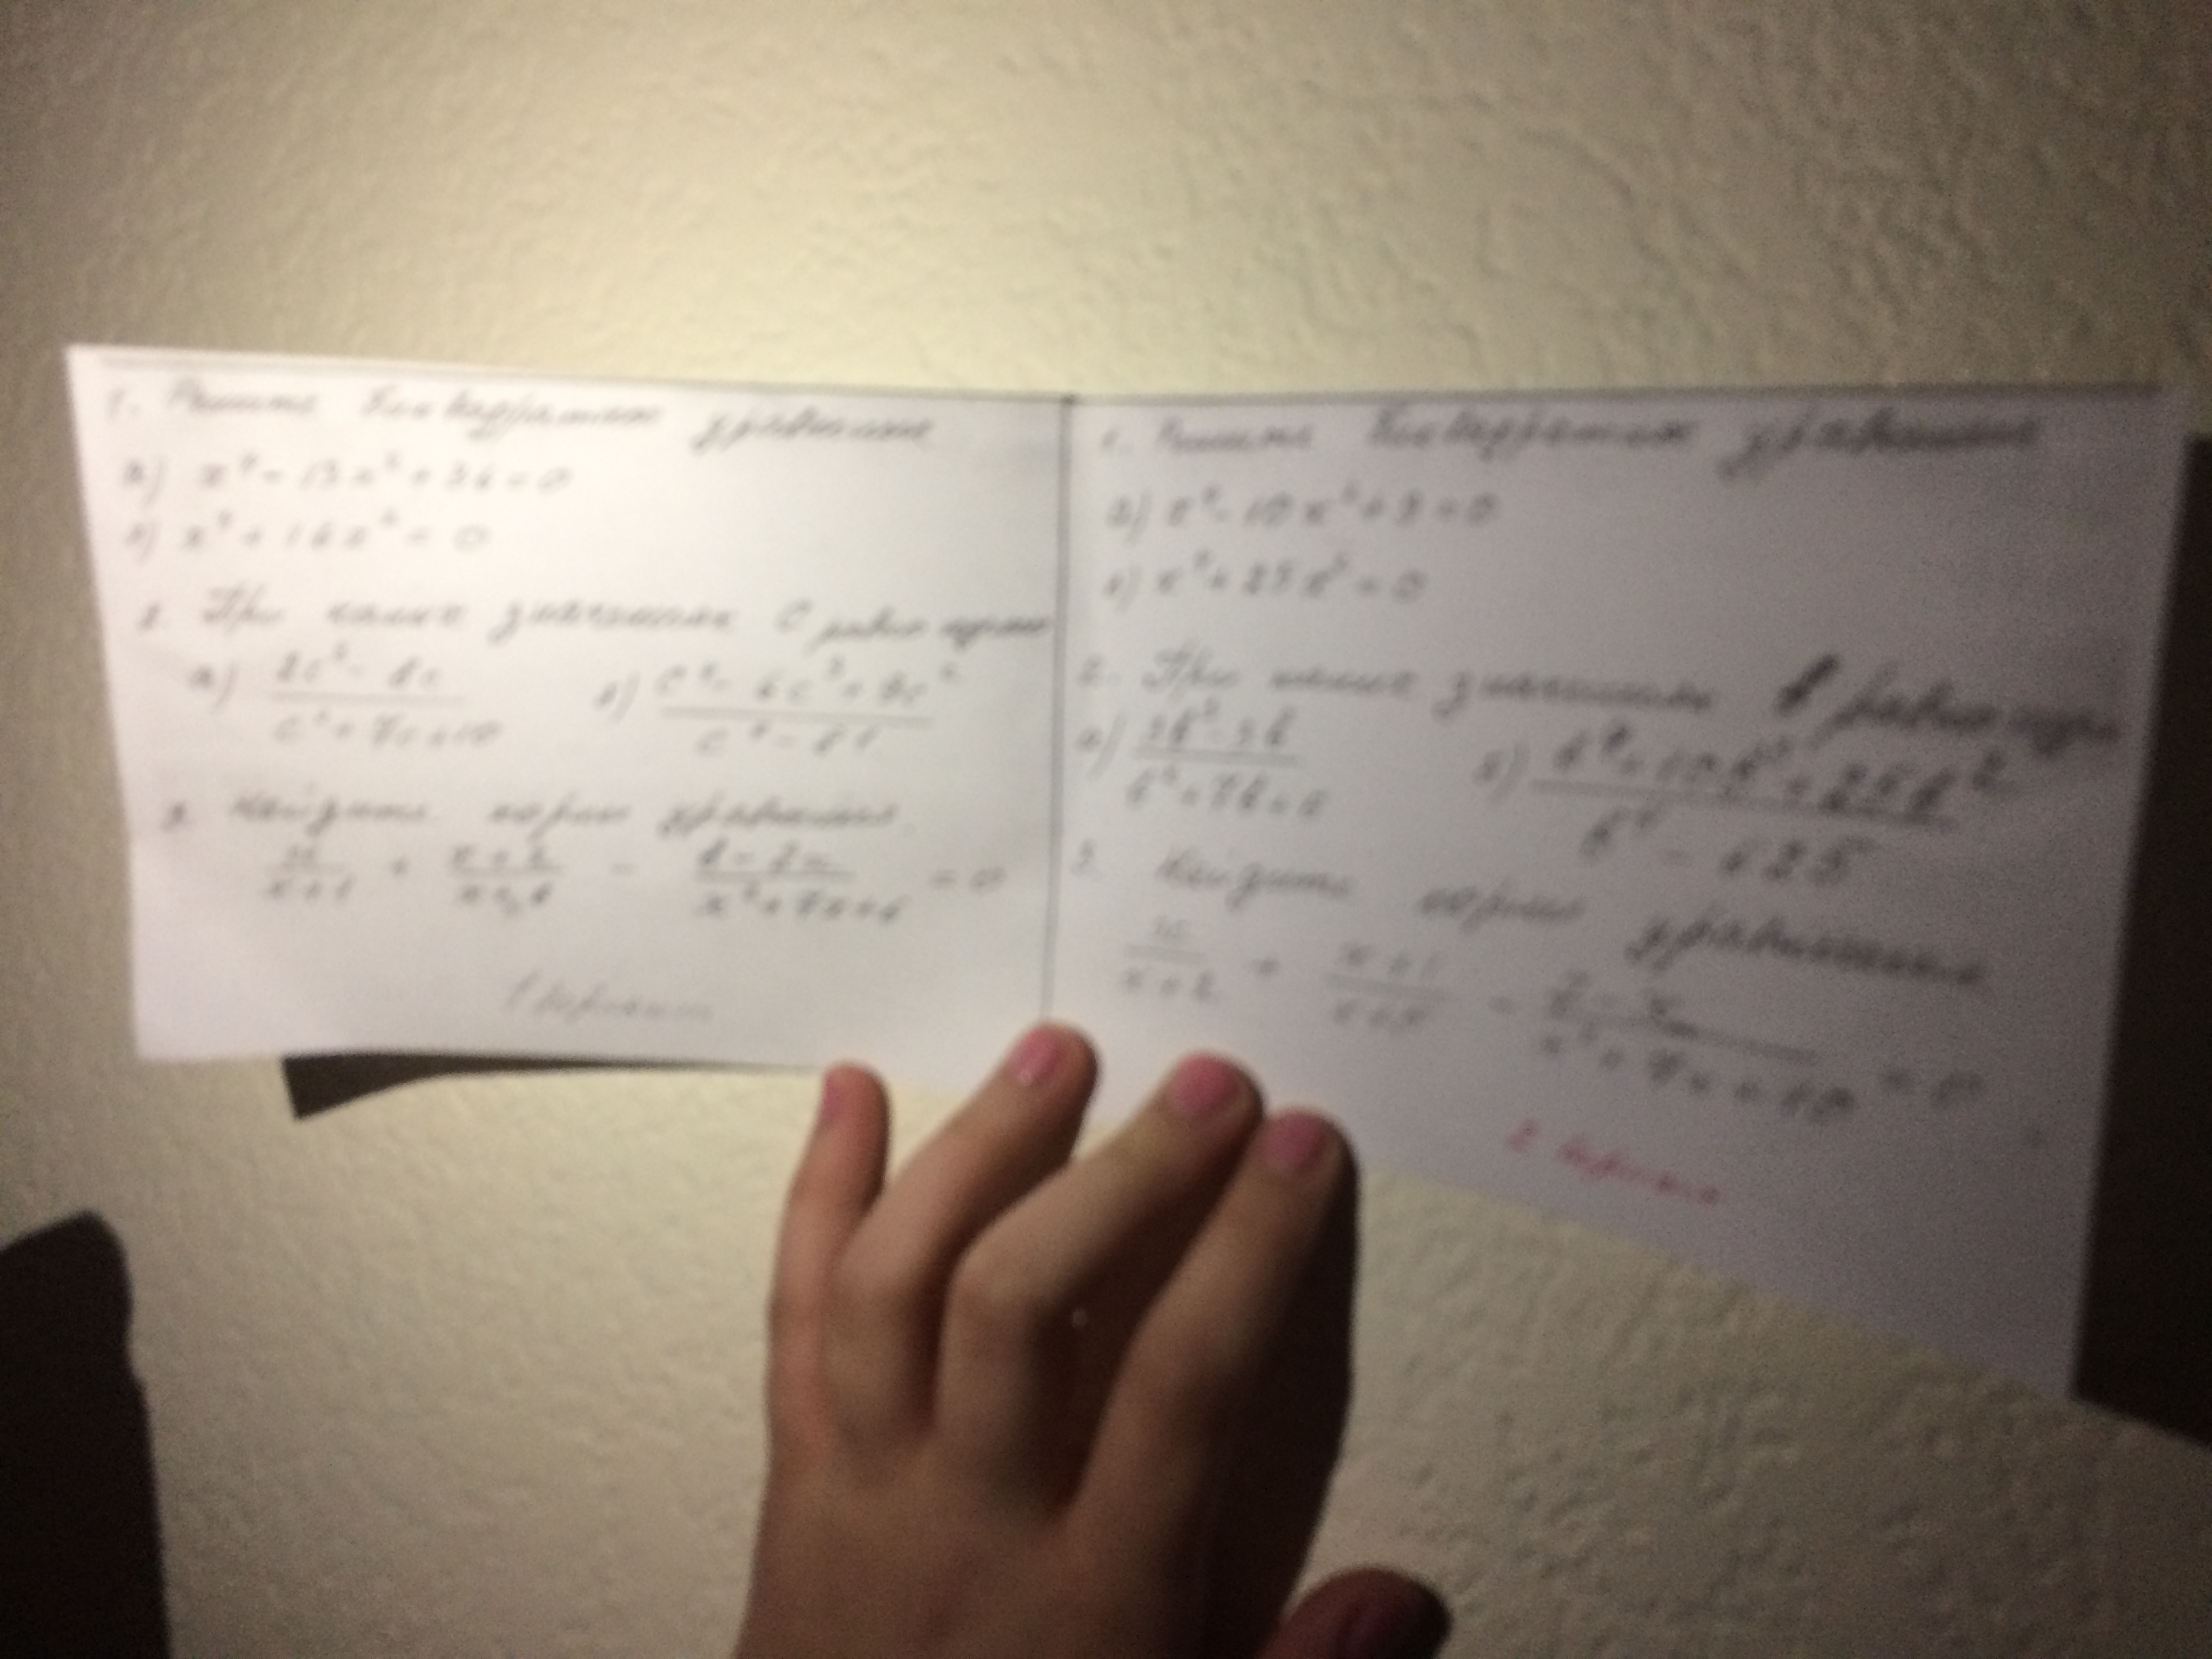 1. Решите биквадратное уравнение
а) x⁴ - 13x² + 36 = 0
б) x⁴ + 16x² = 0
2. При каких значениях c равно нулю
а) (2c² - 8c)/(c² + 7c + 10) б) (c⁴ - 6c³ + 9c²)/(c⁴ - 81)
3. Найдите корни уравнения
x/(x+1) + /(x+6) - /(x² + 7x + 6) = 0
1 вариант
1. Решите биквадратное уравнение
а) x⁴ - 10x² + 9 = 0
б) x⁴ + 25x² = 0
2. При каких значениях b равно
а) /(b² + 7b + 6) б) (b⁴ + 10b³ + 25b²)/(b⁴ - 625)
3. Найдите корни уравнения
x/(x+2) + (x+1)/(x+5) - /(x² + 7x + 10) = 0
2 вариант